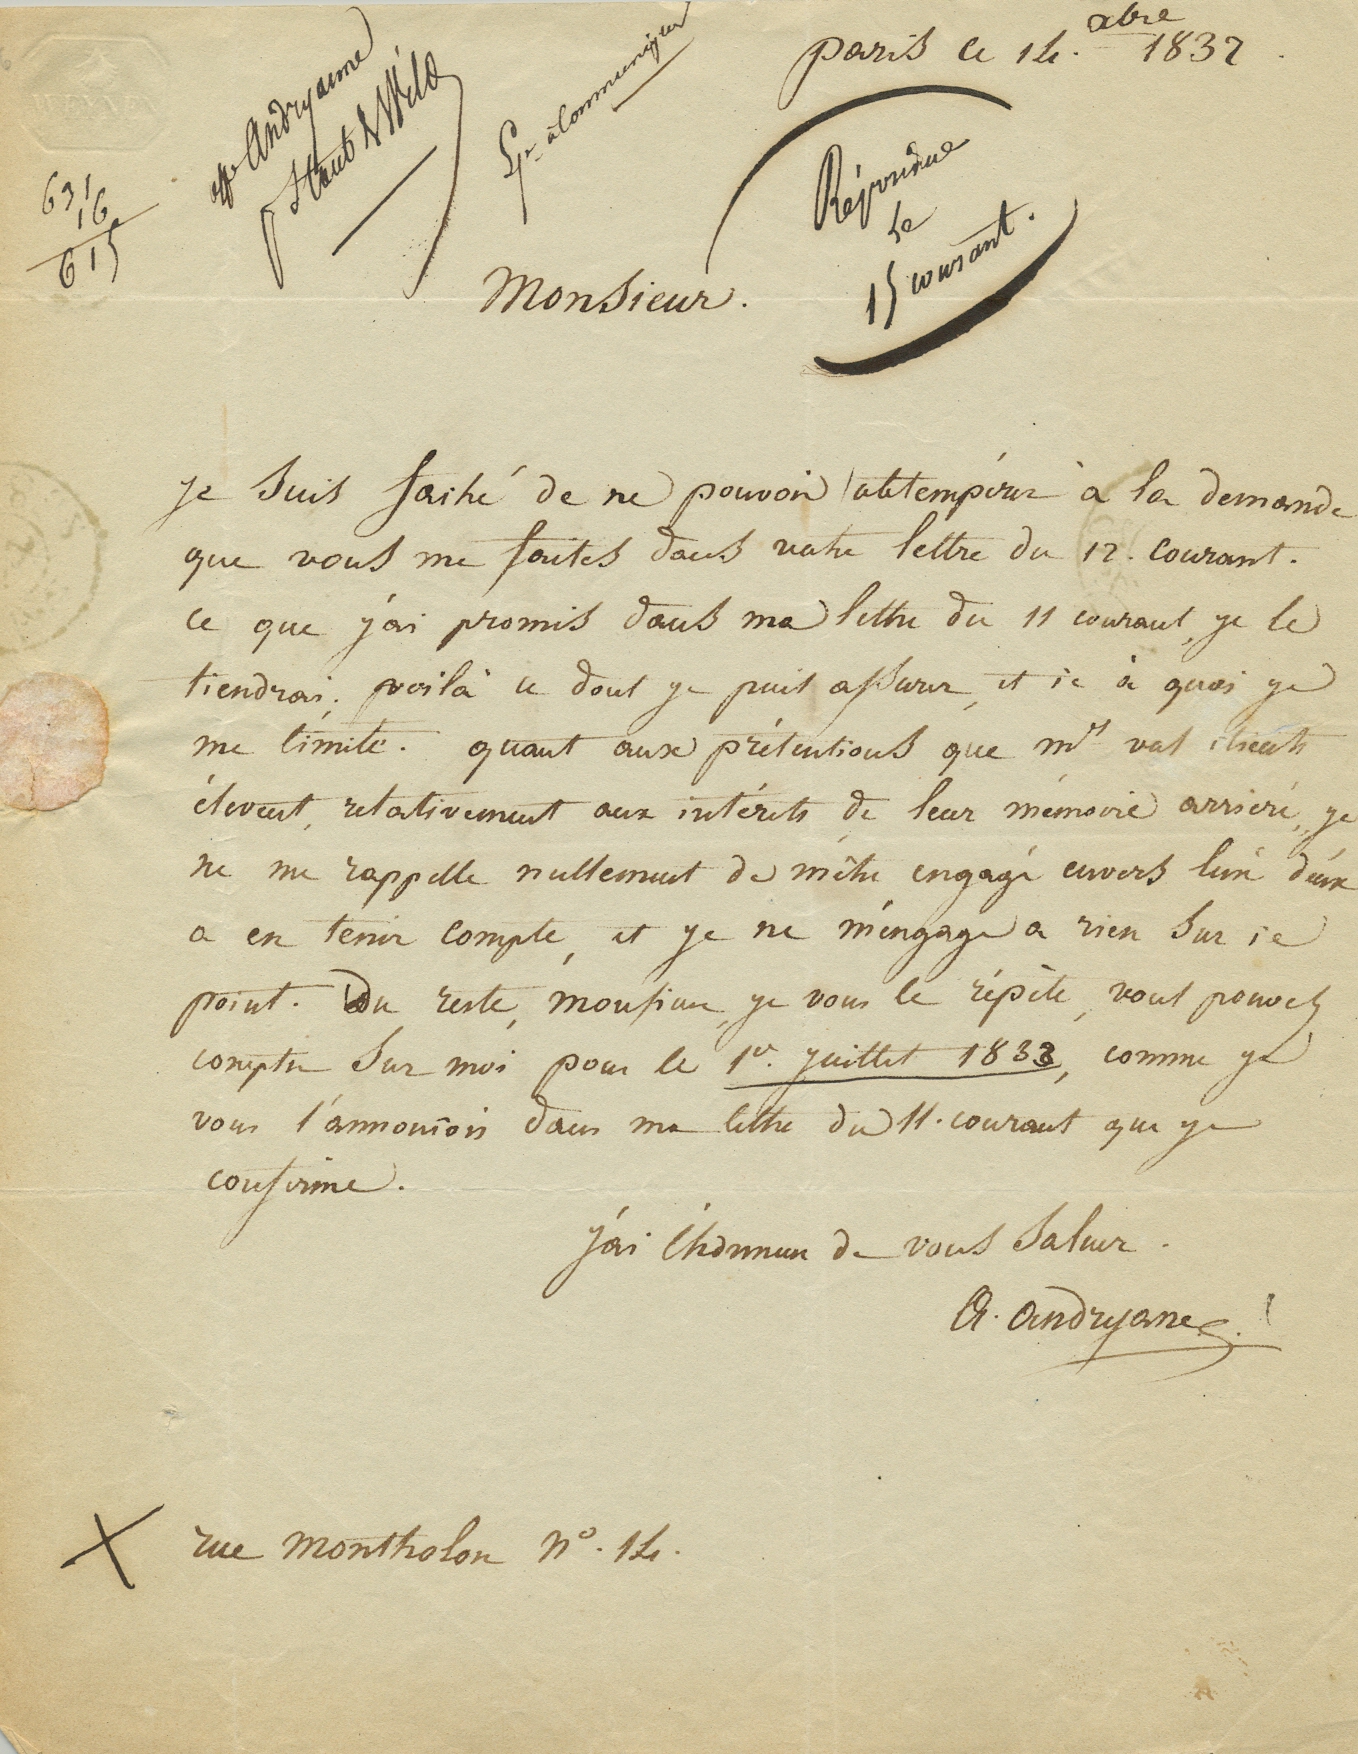 paris ce 14. xbre 1832
affe Andryanne
Staub & Wild
à Communiquer
Répondue
le
15 courant.
631
16
615
Monsieur.
je suis faché de ne pouvoir obtempérer à la demande
que vous me faites dans votre lettre du 12. courant.
ce que j'ai promis dans ma lettre du 11 courant, je le
tiendrai. voilà ce dont je puis assurer, et ce à quoi je
me limite. quant aux prétentions que mrs vos clients
élevent, relativement aux intérêts de leur mémoire arrieré, je
ne me rappelle nullement de m'être engagé envers l'un d'eux
a en tenir compte, et je ne m'engage a rien sur ce
point. Du reste, monsieur, je vous le répète, vous pouvez
compter sur moi pour le 1er. juillet 1833, comme je
vous l'annonçois dans ma lettre du 11. courant que je
confirme.
j'ai l'honneur de vous saluer.
A. andryane
rue montholon No. 14.